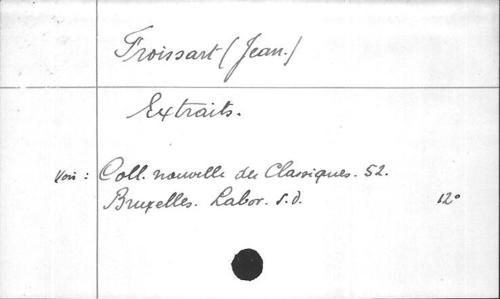 Froissart (Jean.)
Extraits.
Voir : Coll. nouvelle des Classiques. 52.
Bruxelles. Labor. s.d. 12°